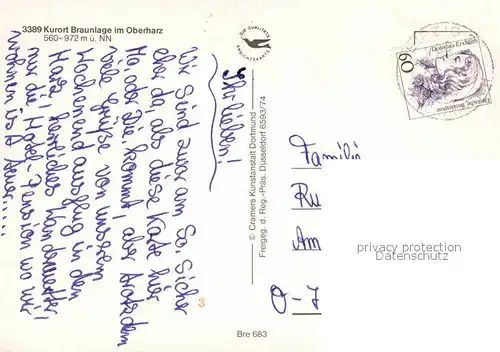 3389 Kurort Braunlage im Oberharz
560–972 m ü. NN
DIE QUALITÄTS
ANSICHTSKARTE
Ihr lieben!
Wir sind zwar am So. sicher
eher da, als diese Karte hier
Mo oder Die. kommt, aber trotzdem
viele Grüße von unserem
Wochenendausflug in den
Harz! herrliches Wanderwetter!
nur die Hotel-Pension wo wir
wohnen ist teuer.....
© Cramers Kunstanstalt Dortmund
Freigeg. d. Reg.-Präs. Düsseldorf 6593/74
Bre 683
60
Dorothea Erxleben
Deutsche Bundespost
Familie
Ru
Am
O-7
privacy protection
Datenschutz